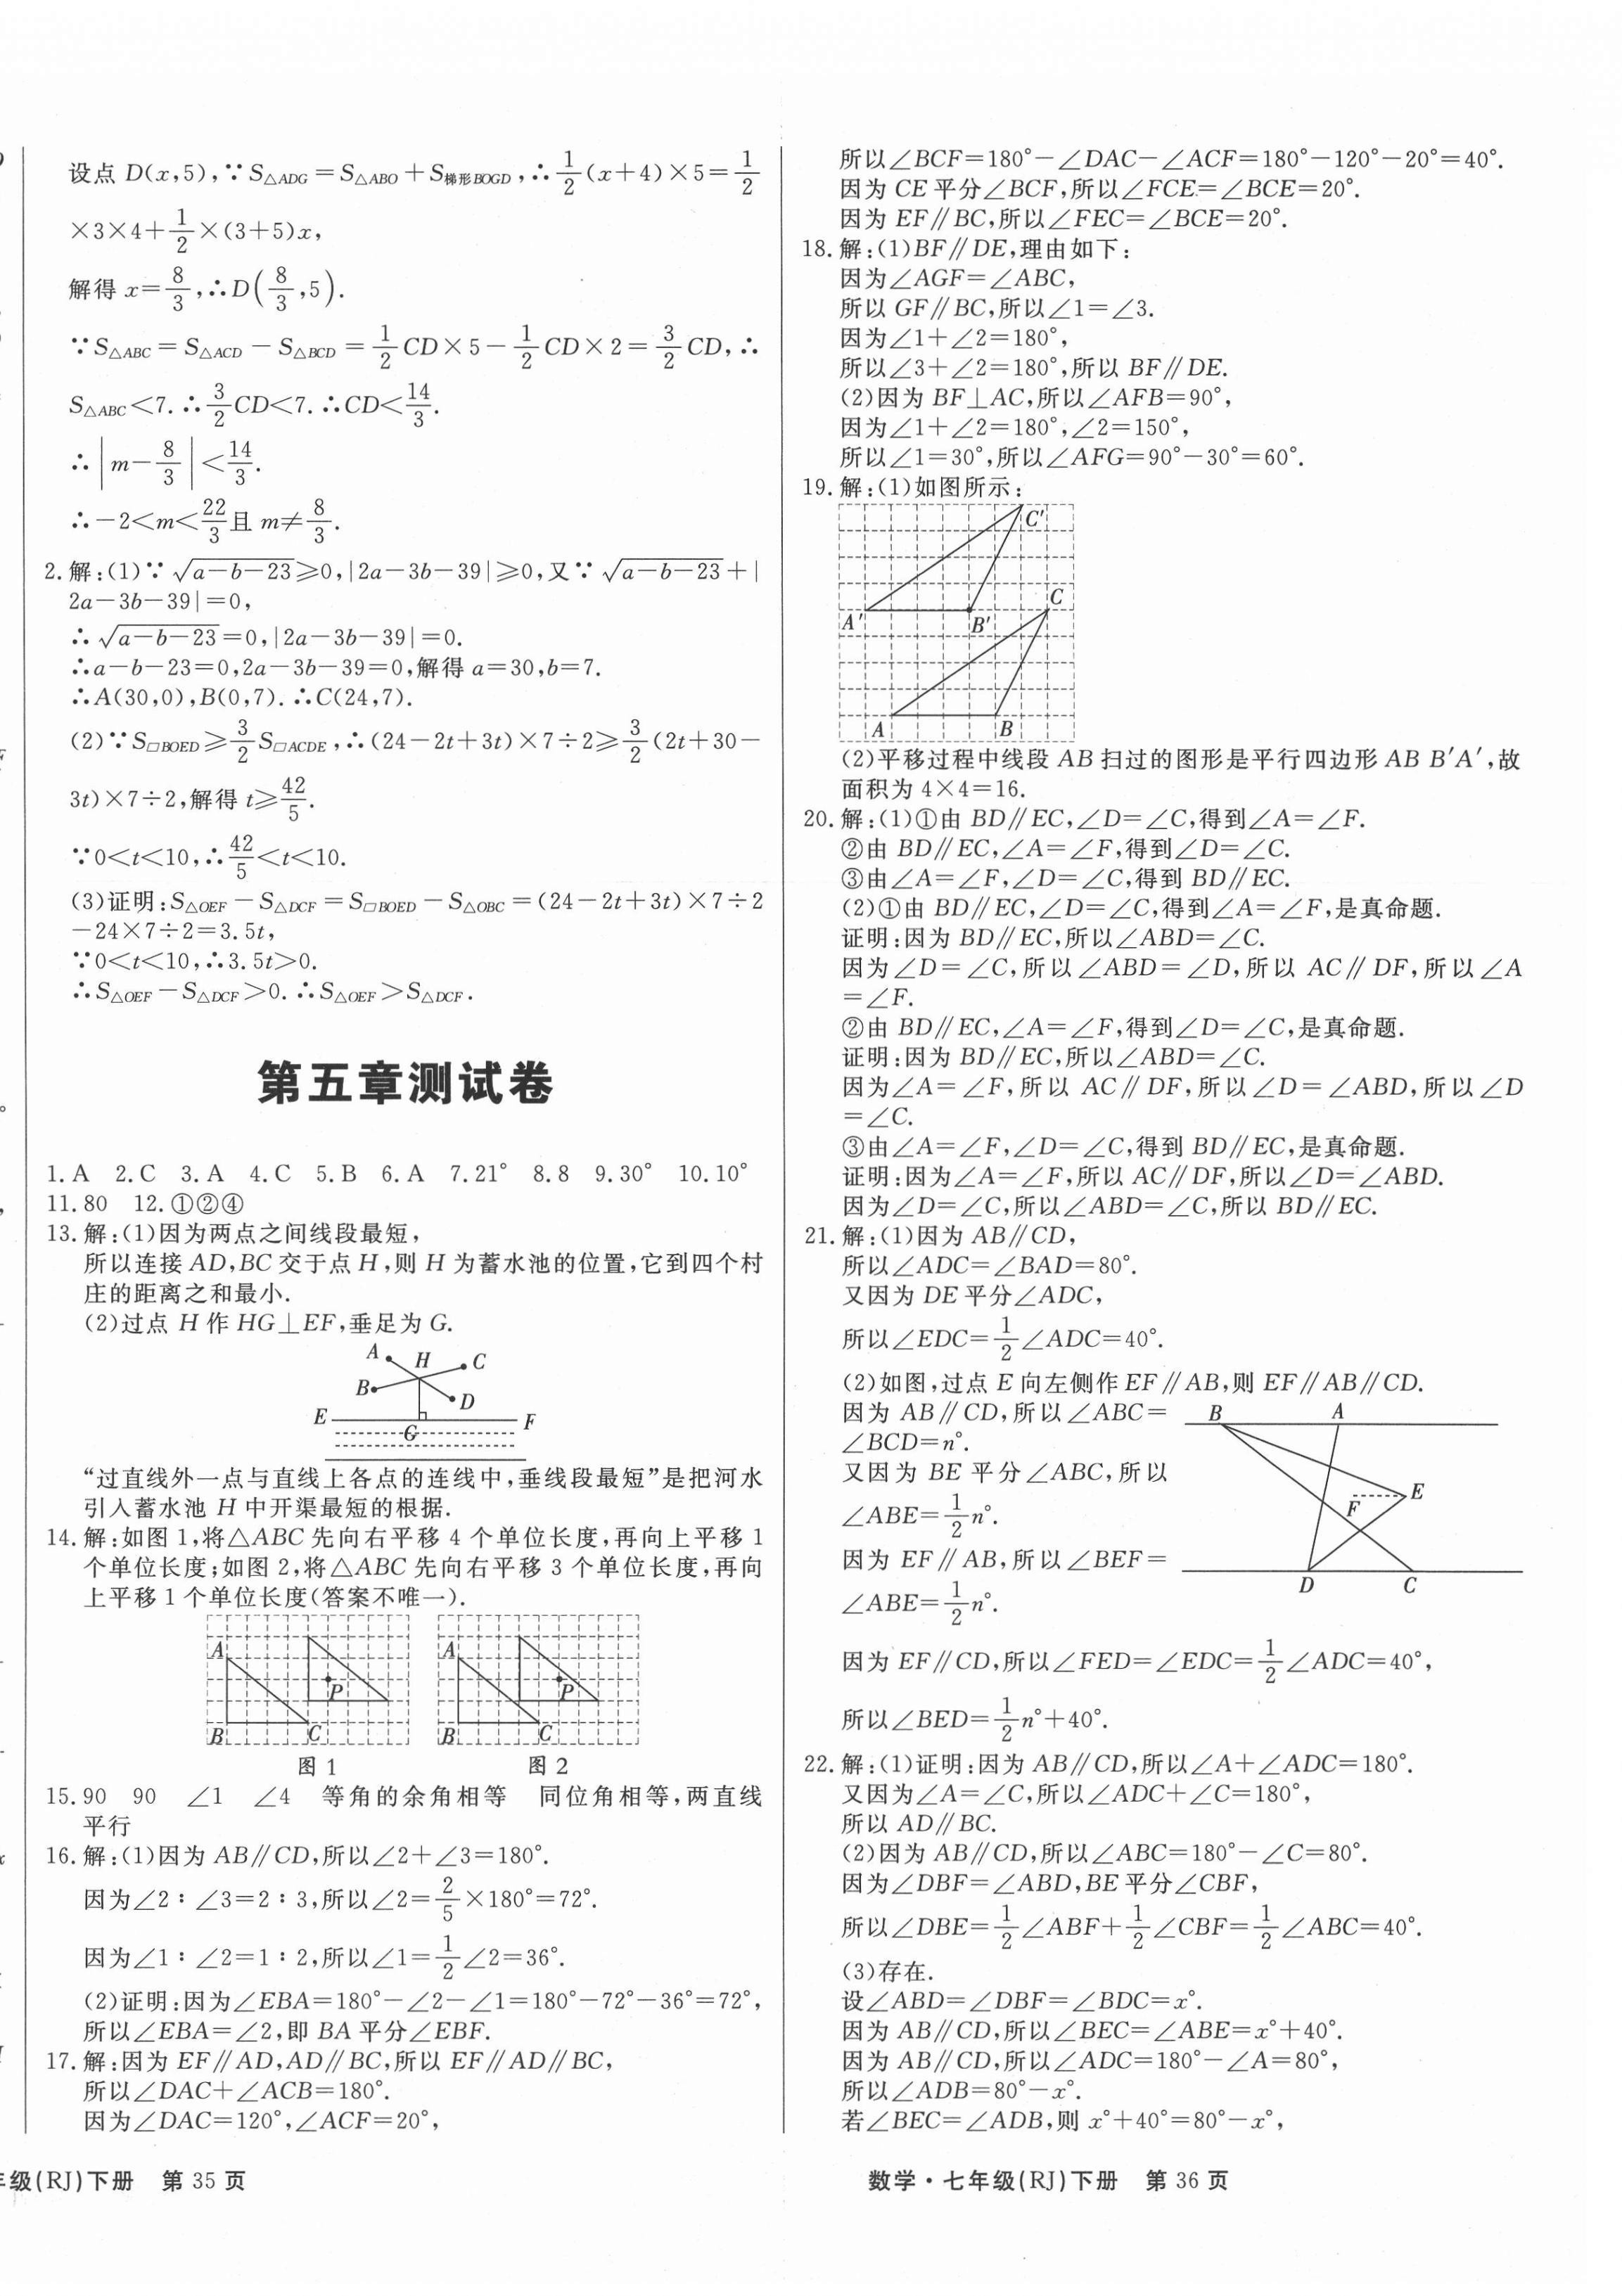 设点 D(x,5),∵S△ADG=S△ABO+S梯形BOGD,∴1/2(x+4)×5=1/2
×3×4+1/2×(3+5)x,
解得 x=8/3,∴D(8/3,5).
∵S△ABC=S△ACD-S△BCD=1/2CD×5-1/2CD×2=3/2CD,∴
S△ABC<7.∴3/2CD<7.∴CD<14/3.
∴|m-8/3|<14/3.
∴-2<m<22/3且 m≠8/3.
2.解:(1)∵√(a-b-23)≥0,|2a-3b-39|≥0,又∵√(a-b-23)+|
2a-3b-39|=0,
∴√(a-b-23)=0,|2a-3b-39|=0.
∴a-b-23=0,2a-3b-39=0,解得 a=30,b=7.
∴A(30,0),B(0,7).∴C(24,7).
(2)∵S□BOED≥3/2S□ACDE,∴(24-2t+3t)×7÷2≥3/2(2t+30-
3t)×7÷2,解得 t≥42/5.
∵0<t<10,∴42/5<t<10.
(3)证明:S△OEF-S△DCF=S□BOED-S△OBC=(24-2t+3t)×7÷2
-24×7÷2=3.5t,
∵0<t<10,∴3.5t>0.
∴S△OEF-S△DCF>0.∴S△OEF>S△DCF.
第五章测试卷
1.A 2.C 3.A 4.C 5.B 6.A 7.21° 8.8 9.30° 10.10°
11.80 12.①②④
13.解:(1)因为两点之间线段最短,
所以连接 AD,BC 交于点 H,则 H 为蓄水池的位置,它到四个村
庄的距离之和最小.
(2)过点 H 作 HG⊥EF,垂足为 G.
A H C
B D
E F
G
“过直线外一点与直线上各点的连线中,垂线段最短”是把河水
引入蓄水池 H 中开渠最短的根据.
14.解:如图 1,将△ABC 先向右平移 4 个单位长度,再向上平移 1
个单位长度;如图 2,将△ABC 先向右平移 3 个单位长度,再向
上平移 1 个单位长度(答案不唯一).
A P B C
A P B C
图 1 图 2
15.90 90 ∠1 ∠4 等角的余角相等 同位角相等,两直线
平行
16.解:(1)因为 AB∥CD,所以∠2+∠3=180°.
因为∠2∶∠3=2∶3,所以∠2=2/5×180°=72°.
因为∠1∶∠2=1∶2,所以∠1=1/2∠2=36°.
(2)证明:因为∠EBA=180°-∠2-∠1=180°-72°-36°=72°,
所以∠EBA=∠2,即 BA 平分∠EBF.
17.解:因为 EF∥AD,AD∥BC,所以 EF∥AD∥BC,
所以∠DAC+∠ACB=180°.
因为∠DAC=120°,∠ACF=20°,
年级(RJ)下册 第 35 页
所以∠BCF=180°-∠DAC-∠ACF=180°-120°-20°=40°.
因为 CE 平分∠BCF,所以∠FCE=∠BCE=20°.
因为 EF∥BC,所以∠FEC=∠BCE=20°.
18.解:(1)BF∥DE,理由如下:
因为∠AGF=∠ABC,
所以 GF∥BC,所以∠1=∠3.
因为∠1+∠2=180°,
所以∠3+∠2=180°,所以 BF∥DE.
(2)因为 BF⊥AC,所以∠AFB=90°,
因为∠1+∠2=180°,∠2=150°,
所以∠1=30°,所以∠AFG=90°-30°=60°.
19.解:(1)如图所示:
C′
C
A′ B′
A B
(2)平移过程中线段 AB 扫过的图形是平行四边形 AB B′A′,故
面积为 4×4=16.
20.解:(1)①由 BD∥EC,∠D=∠C,得到∠A=∠F.
②由 BD∥EC,∠A=∠F,得到∠D=∠C.
③由∠A=∠F,∠D=∠C,得到 BD∥EC.
(2)①由 BD∥EC,∠D=∠C,得到∠A=∠F,是真命题.
证明:因为 BD∥EC,所以∠ABD=∠C.
因为∠D=∠C,所以∠ABD=∠D,所以 AC∥DF,所以∠A
=∠F.
②由 BD∥EC,∠A=∠F,得到∠D=∠C,是真命题.
证明:因为 BD∥EC,所以∠ABD=∠C.
因为∠A=∠F,所以 AC∥DF,所以∠D=∠ABD,所以∠D
=∠C.
③由∠A=∠F,∠D=∠C,得到 BD∥EC,是真命题.
证明:因为∠A=∠F,所以 AC∥DF,所以∠D=∠ABD.
因为∠D=∠C,所以∠ABD=∠C,所以 BD∥EC.
21.解:(1)因为 AB∥CD,
所以∠ADC=∠BAD=80°.
又因为 DE 平分∠ADC,
所以∠EDC=1/2∠ADC=40°.
(2)如图,过点 E 向左侧作 EF∥AB,则 EF∥AB∥CD.
因为 AB∥CD,所以∠ABC=
∠BCD=n°.
又因为 BE 平分∠ABC,所以
∠ABE=1/2n°.
因为 EF∥AB,所以∠BEF=
∠ABE=1/2n°.
B A
F E
D C
因为 EF∥CD,所以∠FED=∠EDC=1/2∠ADC=40°,
所以∠BED=1/2n°+40°.
22.解:(1)证明:因为 AB∥CD,所以∠A+∠ADC=180°.
又因为∠A=∠C,所以∠ADC+∠C=180°,
所以 AD∥BC.
(2)因为 AB∥CD,所以∠ABC=180°-∠C=80°.
因为∠DBF=∠ABD,BE 平分∠CBF,
所以∠DBE=1/2∠ABF+1/2∠CBF=1/2∠ABC=40°.
(3)存在.
设∠ABD=∠DBF=∠BDC=x°.
因为 AB∥CD,所以∠BEC=∠ABE=x°+40°.
因为 AB∥CD,所以∠ADC=180°-∠A=80°,
所以∠ADB=80°-x°.
若∠BEC=∠ADB,则 x°+40°=80°-x°,
数学·七年级(RJ)下册 第 36 页